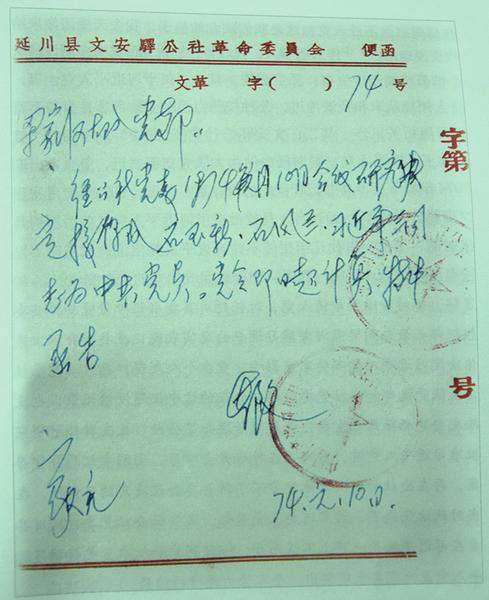 延川县文安驛公社革命委員會 便函
文革 字( ) 74 号
字第
梁家河大队党支部：
经公社党委1974年1月10日会议研究决
定接收 石玉新、石凤兰、习近平三同
志为中共党员。党令即日起计算。特此
函告
号
74.元.10日.